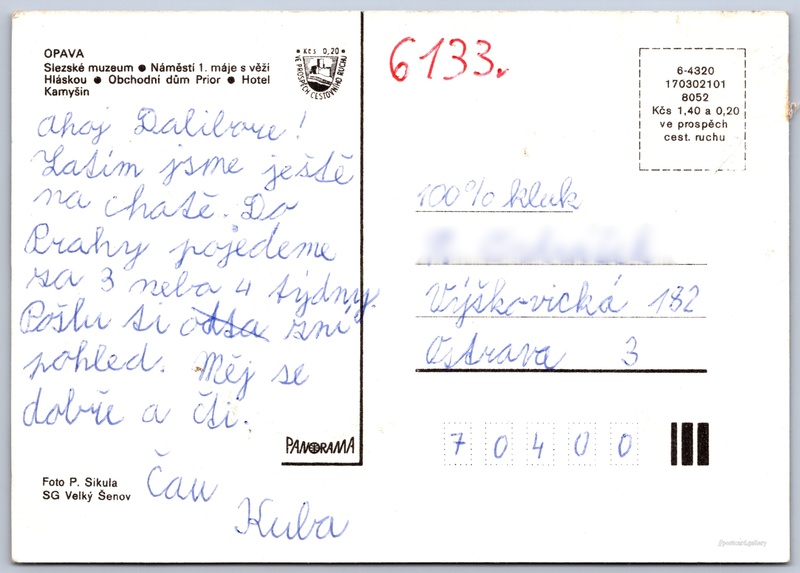 OPAVA
Slezské muzeum ● Náměstí 1. máje s věží
Hláskou ● Obchodní dům Prior ● Hotel
Kamyšin
• Kčs 0,20 •
VE PROSPĚCH CESTOVNÍHO RUCHU
6133.
6-4320
170302101
8052
Kčs 1,40 a 0,20
ve prospěch
cest. ruchu
Ahoj Dalibore!
Zatím jsme ještě
na chatě. Do
Prahy pojedeme
za 3 neba 4 týdny.
Pošlu ti zní
pohled. Měj se
dobře a čti.
Čau
Kuba
100% kluk
Výškovická 132
Ostrava 3
70400
PANORAMA
Foto P. Sikula
SG Velký Šenov